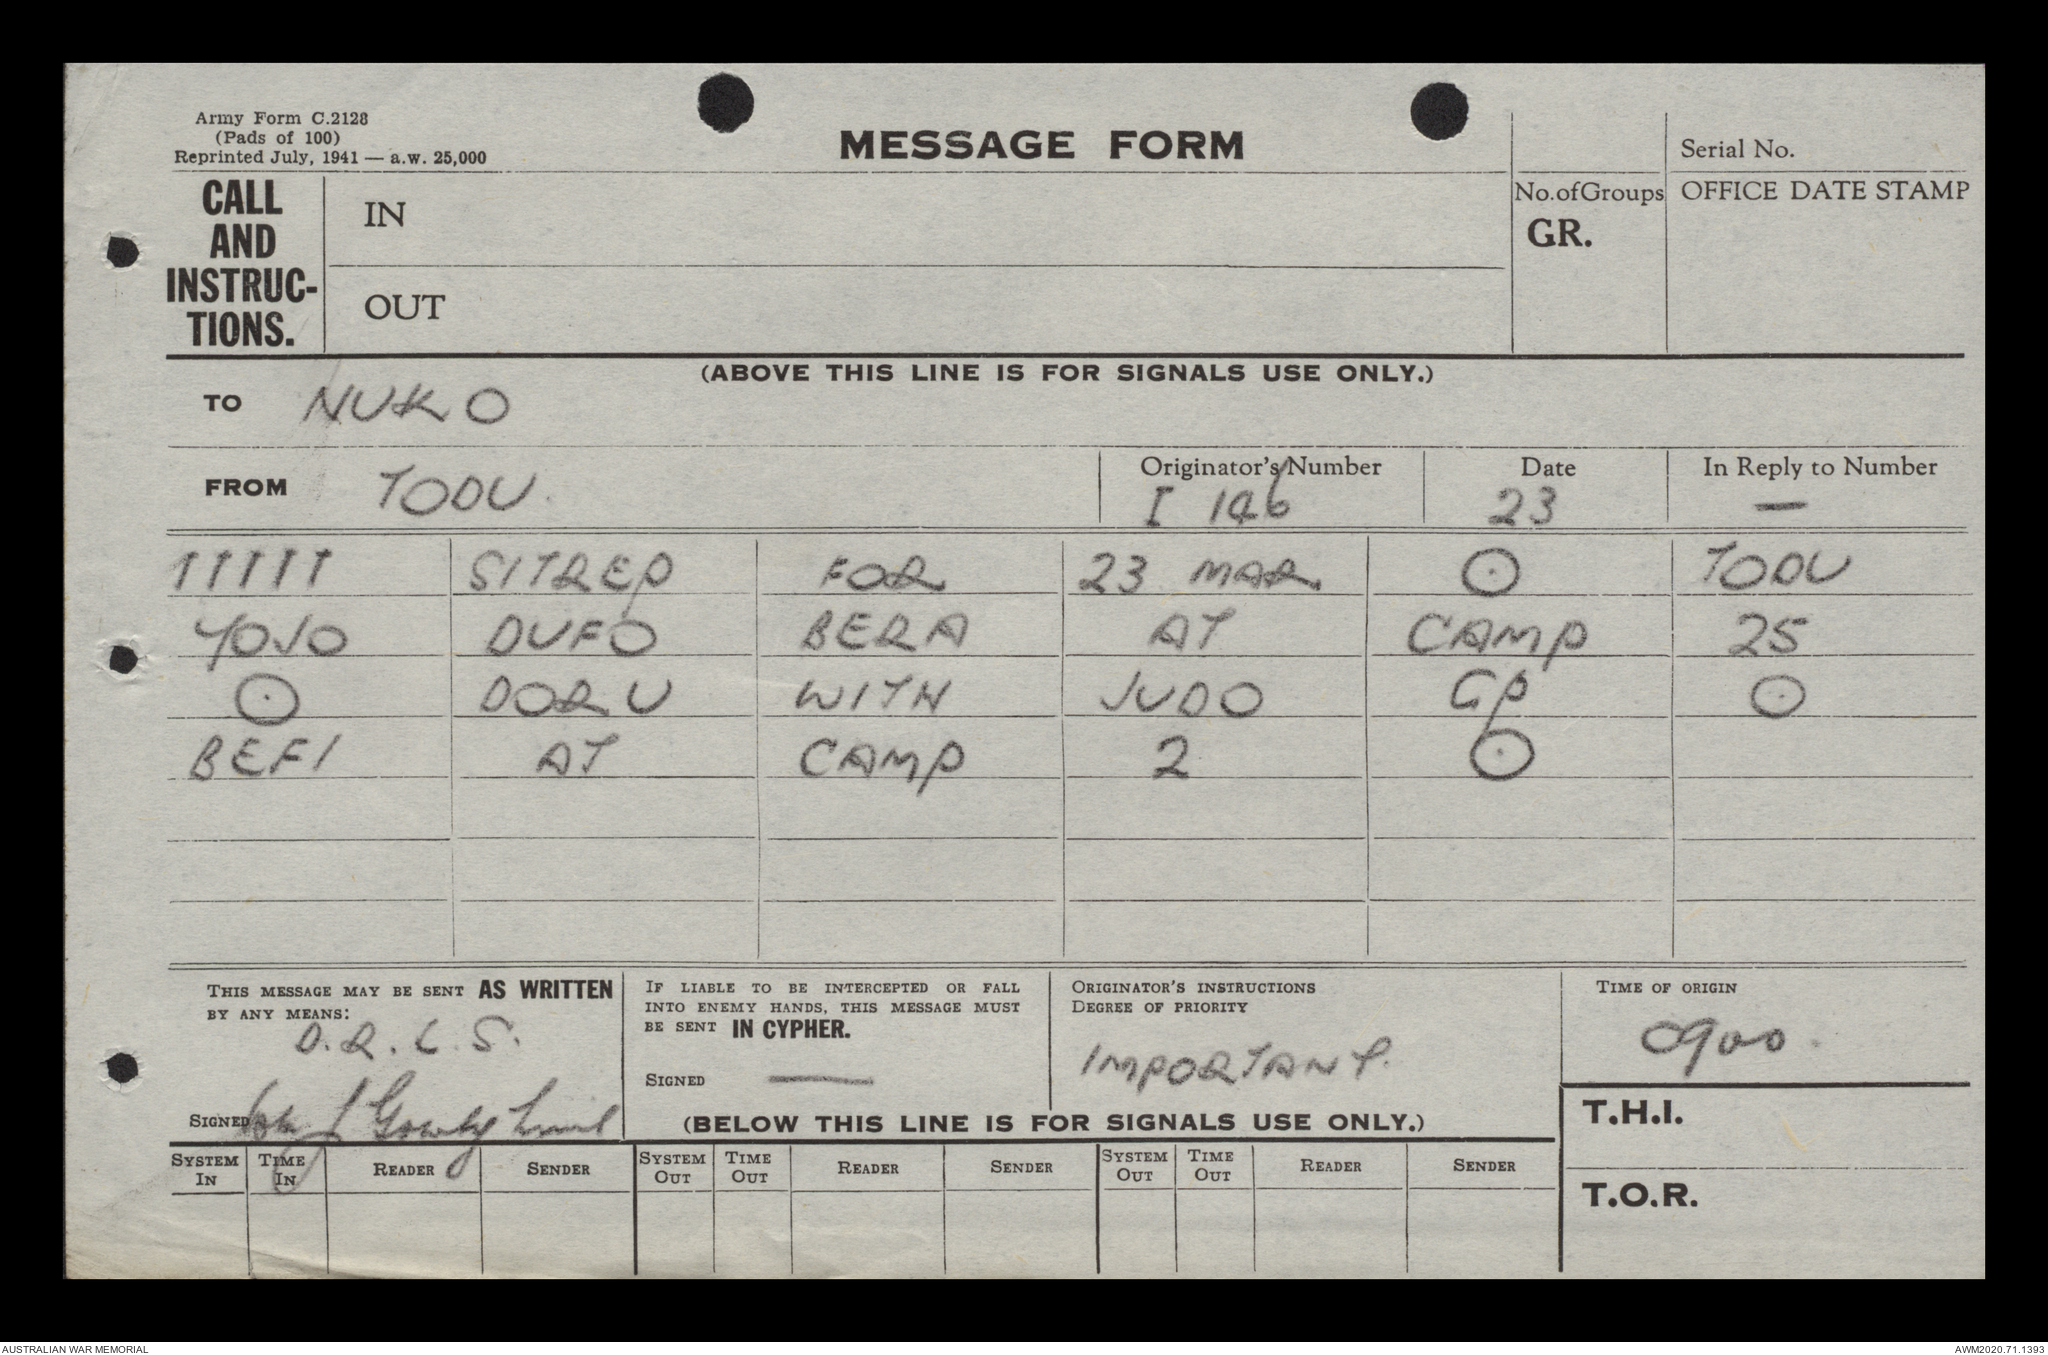 Army Form C.2128
(Pads of 100)
Reprinted July, 1941 — a.w. 25,000
MESSAGE FORM
Serial No.
CALL AND INSTRUC-TIONS.
IN
OUT
No. of Groups
GR.
OFFICE DATE STAMP
(ABOVE THIS LINE IS FOR SIGNALS USE ONLY.)
TO NUKO
FROM TODU.
Originator's Number I 146
Date 23
In Reply to Number —
11111 SITREP FOR 23 MAR ⊙ TODU
YOJO DUFO BERA AT CAMP 25
⊙ DORU WITH JUDO GP ⊙
BEFI AT CAMP 2 ⊙
THIS MESSAGE MAY BE SENT AS WRITTEN
BY ANY MEANS:
D.R.L.S.
SIGNED
IF LIABLE TO BE INTERCEPTED OR FALL
INTO ENEMY HANDS, THIS MESSAGE MUST
BE SENT IN CYPHER.
SIGNED —
ORIGINATOR'S INSTRUCTIONS
DEGREE OF PRIORITY
IMPORTANT.
TIME OF ORIGIN
0900.
(BELOW THIS LINE IS FOR SIGNALS USE ONLY.)
T.H.I.
T.O.R.
SYSTEM IN TIME IN READER SENDER SYSTEM OUT TIME OUT READER SENDER SYSTEM OUT TIME OUT READER SENDER
AUSTRALIAN WAR MEMORIAL
AWM2020.71.1393